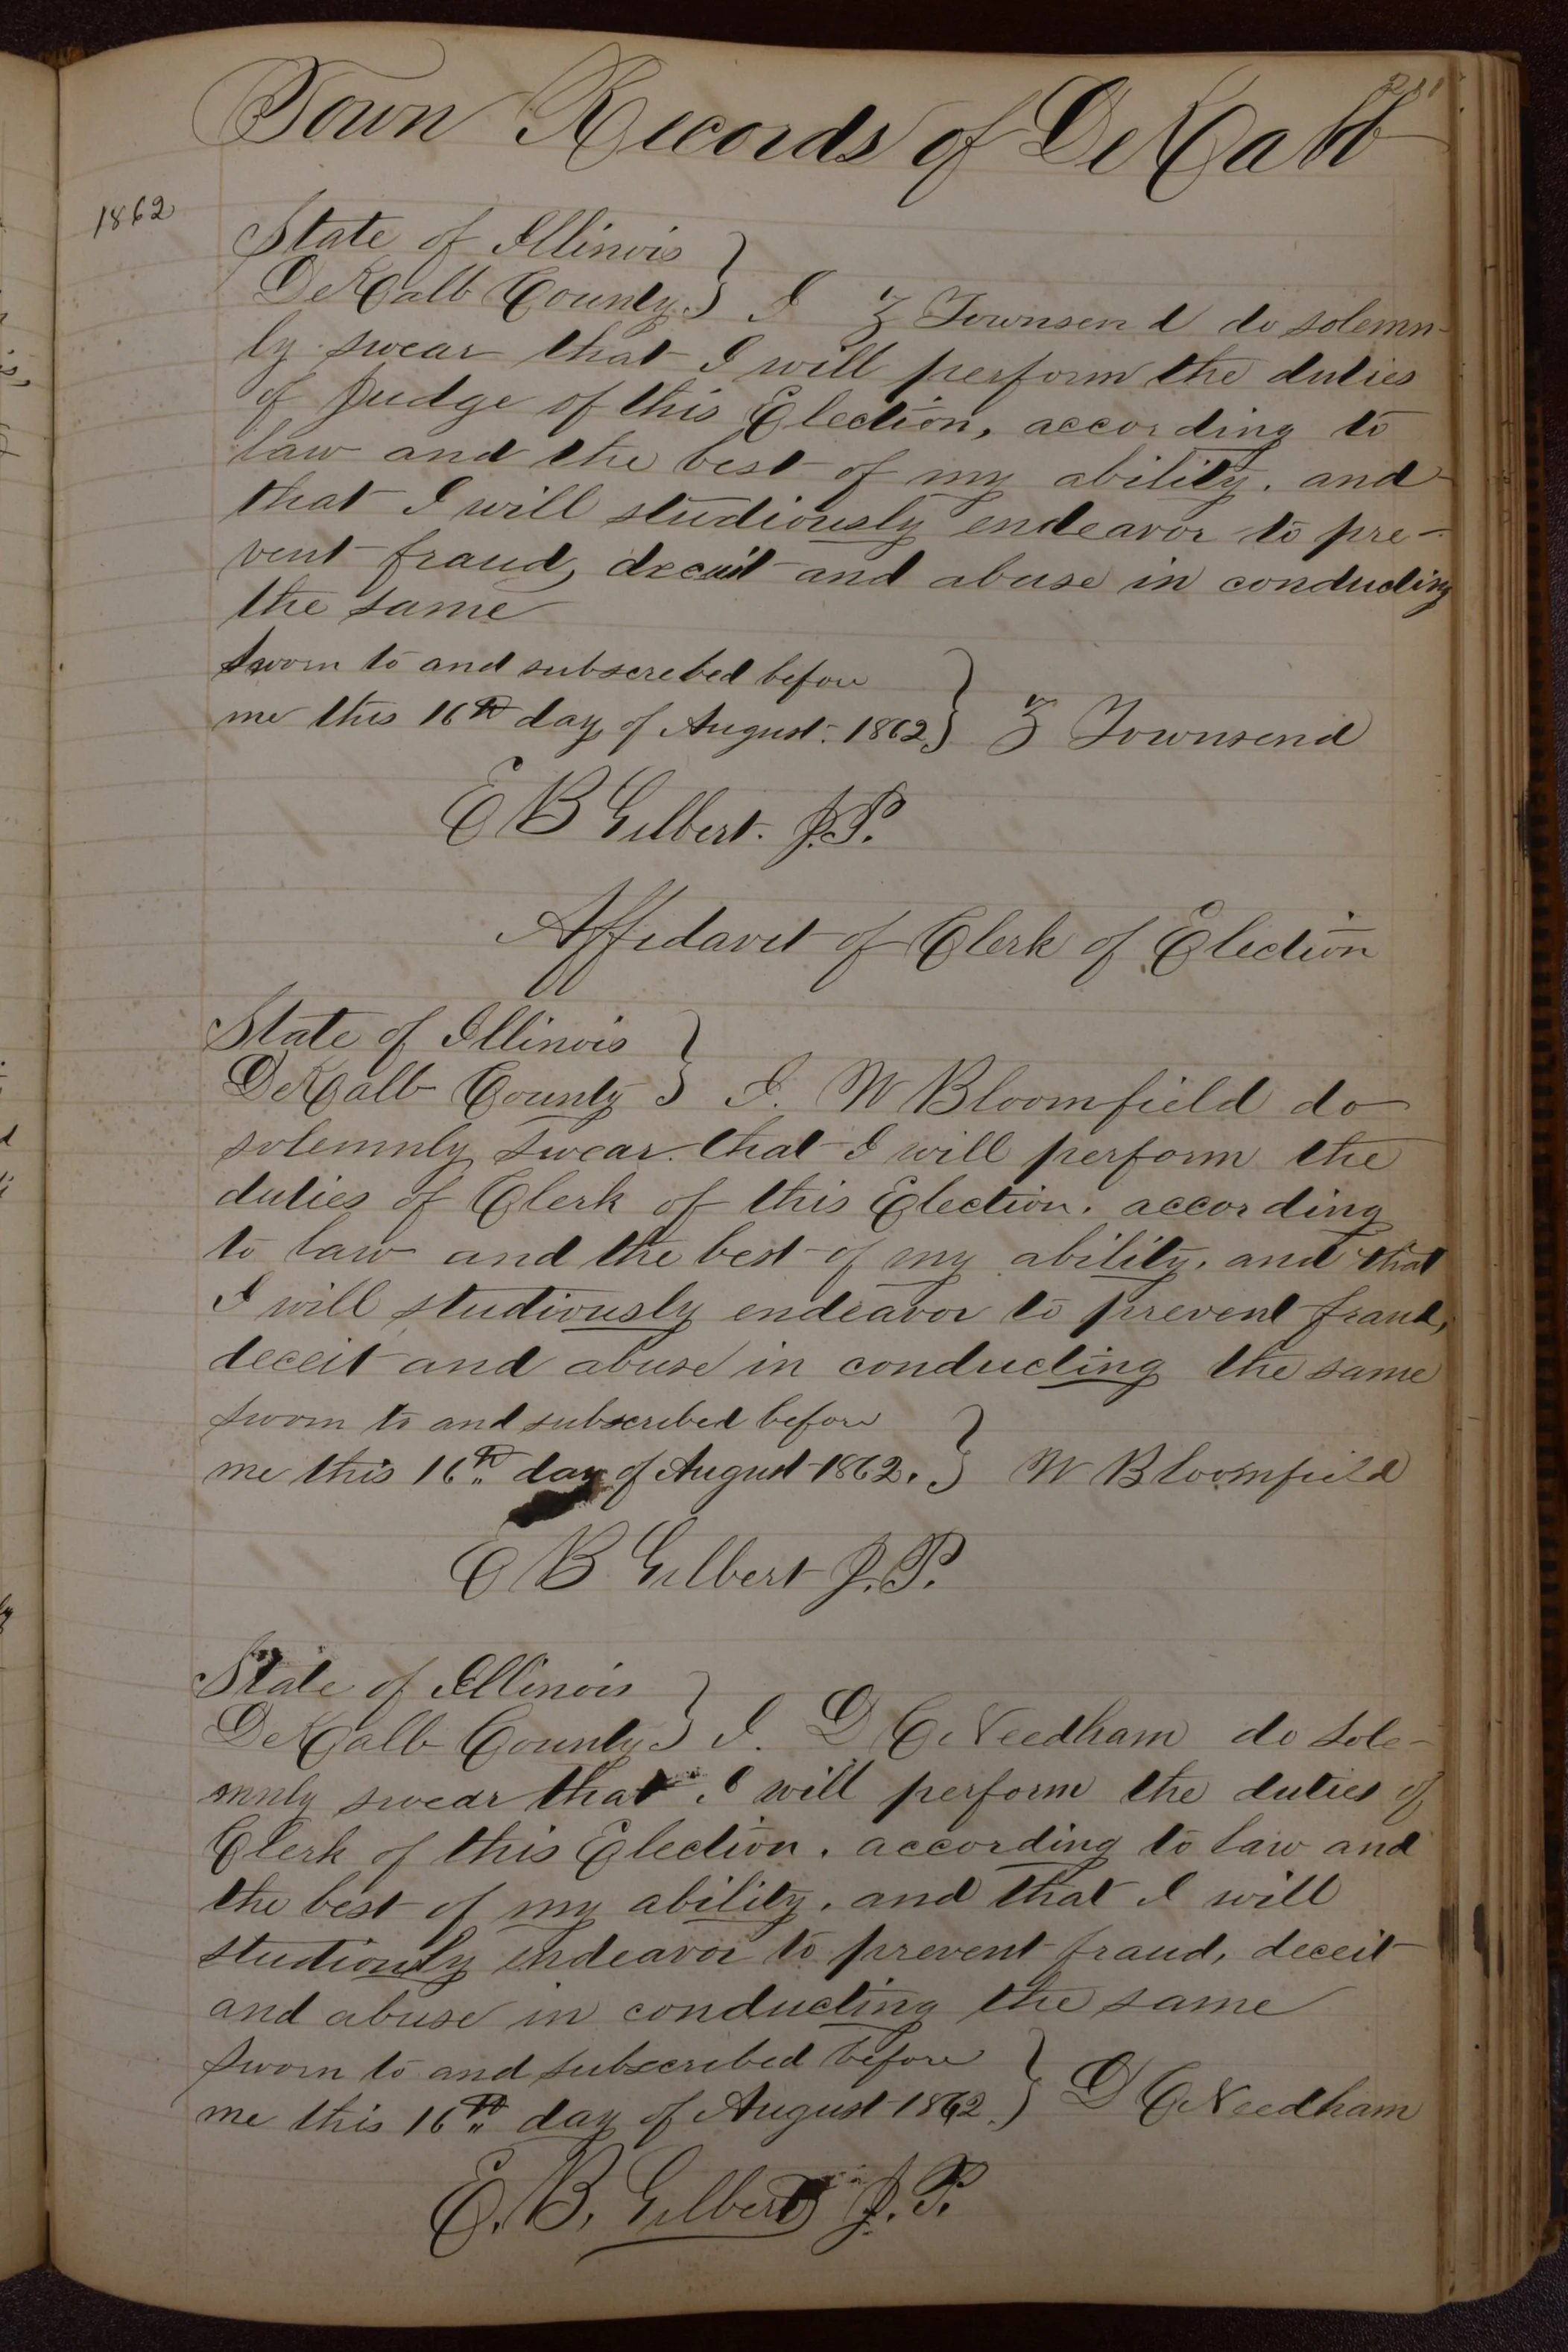 Town Records of DeKalb
1862
State of Illinois }
DeKalb County } I Z Townsend do solemn-
ly swear that I will perform the duties
of Judge of this Election, according to
law and the best of my ability, and
that I will studiously endeavor to pre-
vent fraud, deceit and abuse in conducting
the same
Sworn to and subscrebed before
me this 16th day of August. 1862 } Z Townsend
E B Gilbert. J.P.
Affidavit of Clerk of Election
State of Illinois }
DeKalb County } I. W Bloomfield do
solemnly swear that I will perform the
duties of Clerk of this Election. according
to law and the best of my ability, and that
I will studiously endeavor to prevent fraud,
deceit and abuse in conducting the same
Sworn to and subscribed before
me this 16th day of August 1862. } W Bloomfield
E B Gilbert J.P.
State of Illinois }
DeKalb County } I. D C Needham do sole-
mnly swear that I will perform the duties of
Clerk of this Election. according to law and
the best of my ability, and that I will
studiously endeavor to prevent fraud, deceit
and abuse in conducting the same
Sworn to and subscribed before
me this 16th day of August 1862. } D C Needham
E. B. Gilbert J.P.